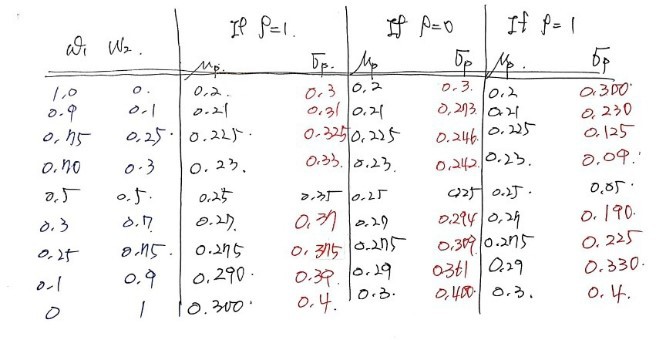 If ρ=1. If ρ=0 If ρ=1
ω₁ ω₂. μp. σp. μp σp μp. σp
1.0 0. 0.2. 0.3 0.2 0.3. 0.2 0.300
0.9 0.1 0.21 0.31 0.21 0.273 0.21 0.230
0.75 0.25. 0.225. 0.325 0.225 0.246. 0.225 0.125
0.70 0.3 0.23. 0.33. 0.23. 0.242. 0.23. 0.09.
0.5 0.5. 0.25 0.35 0.25 0.25. 0.05.
0.3 0.7. 0.27. 0.37 0.27 0.294 0.27 0.190.
0.25 0.75. 0.275 0.375 0.275 0.309 0.275 0.225
0.1 0.9 0.290. 0.39. 0.29 0.361 0.29 0.330.
0 1 0.300. 0.4. 0.3. 0.400. 0.3. 0.4.